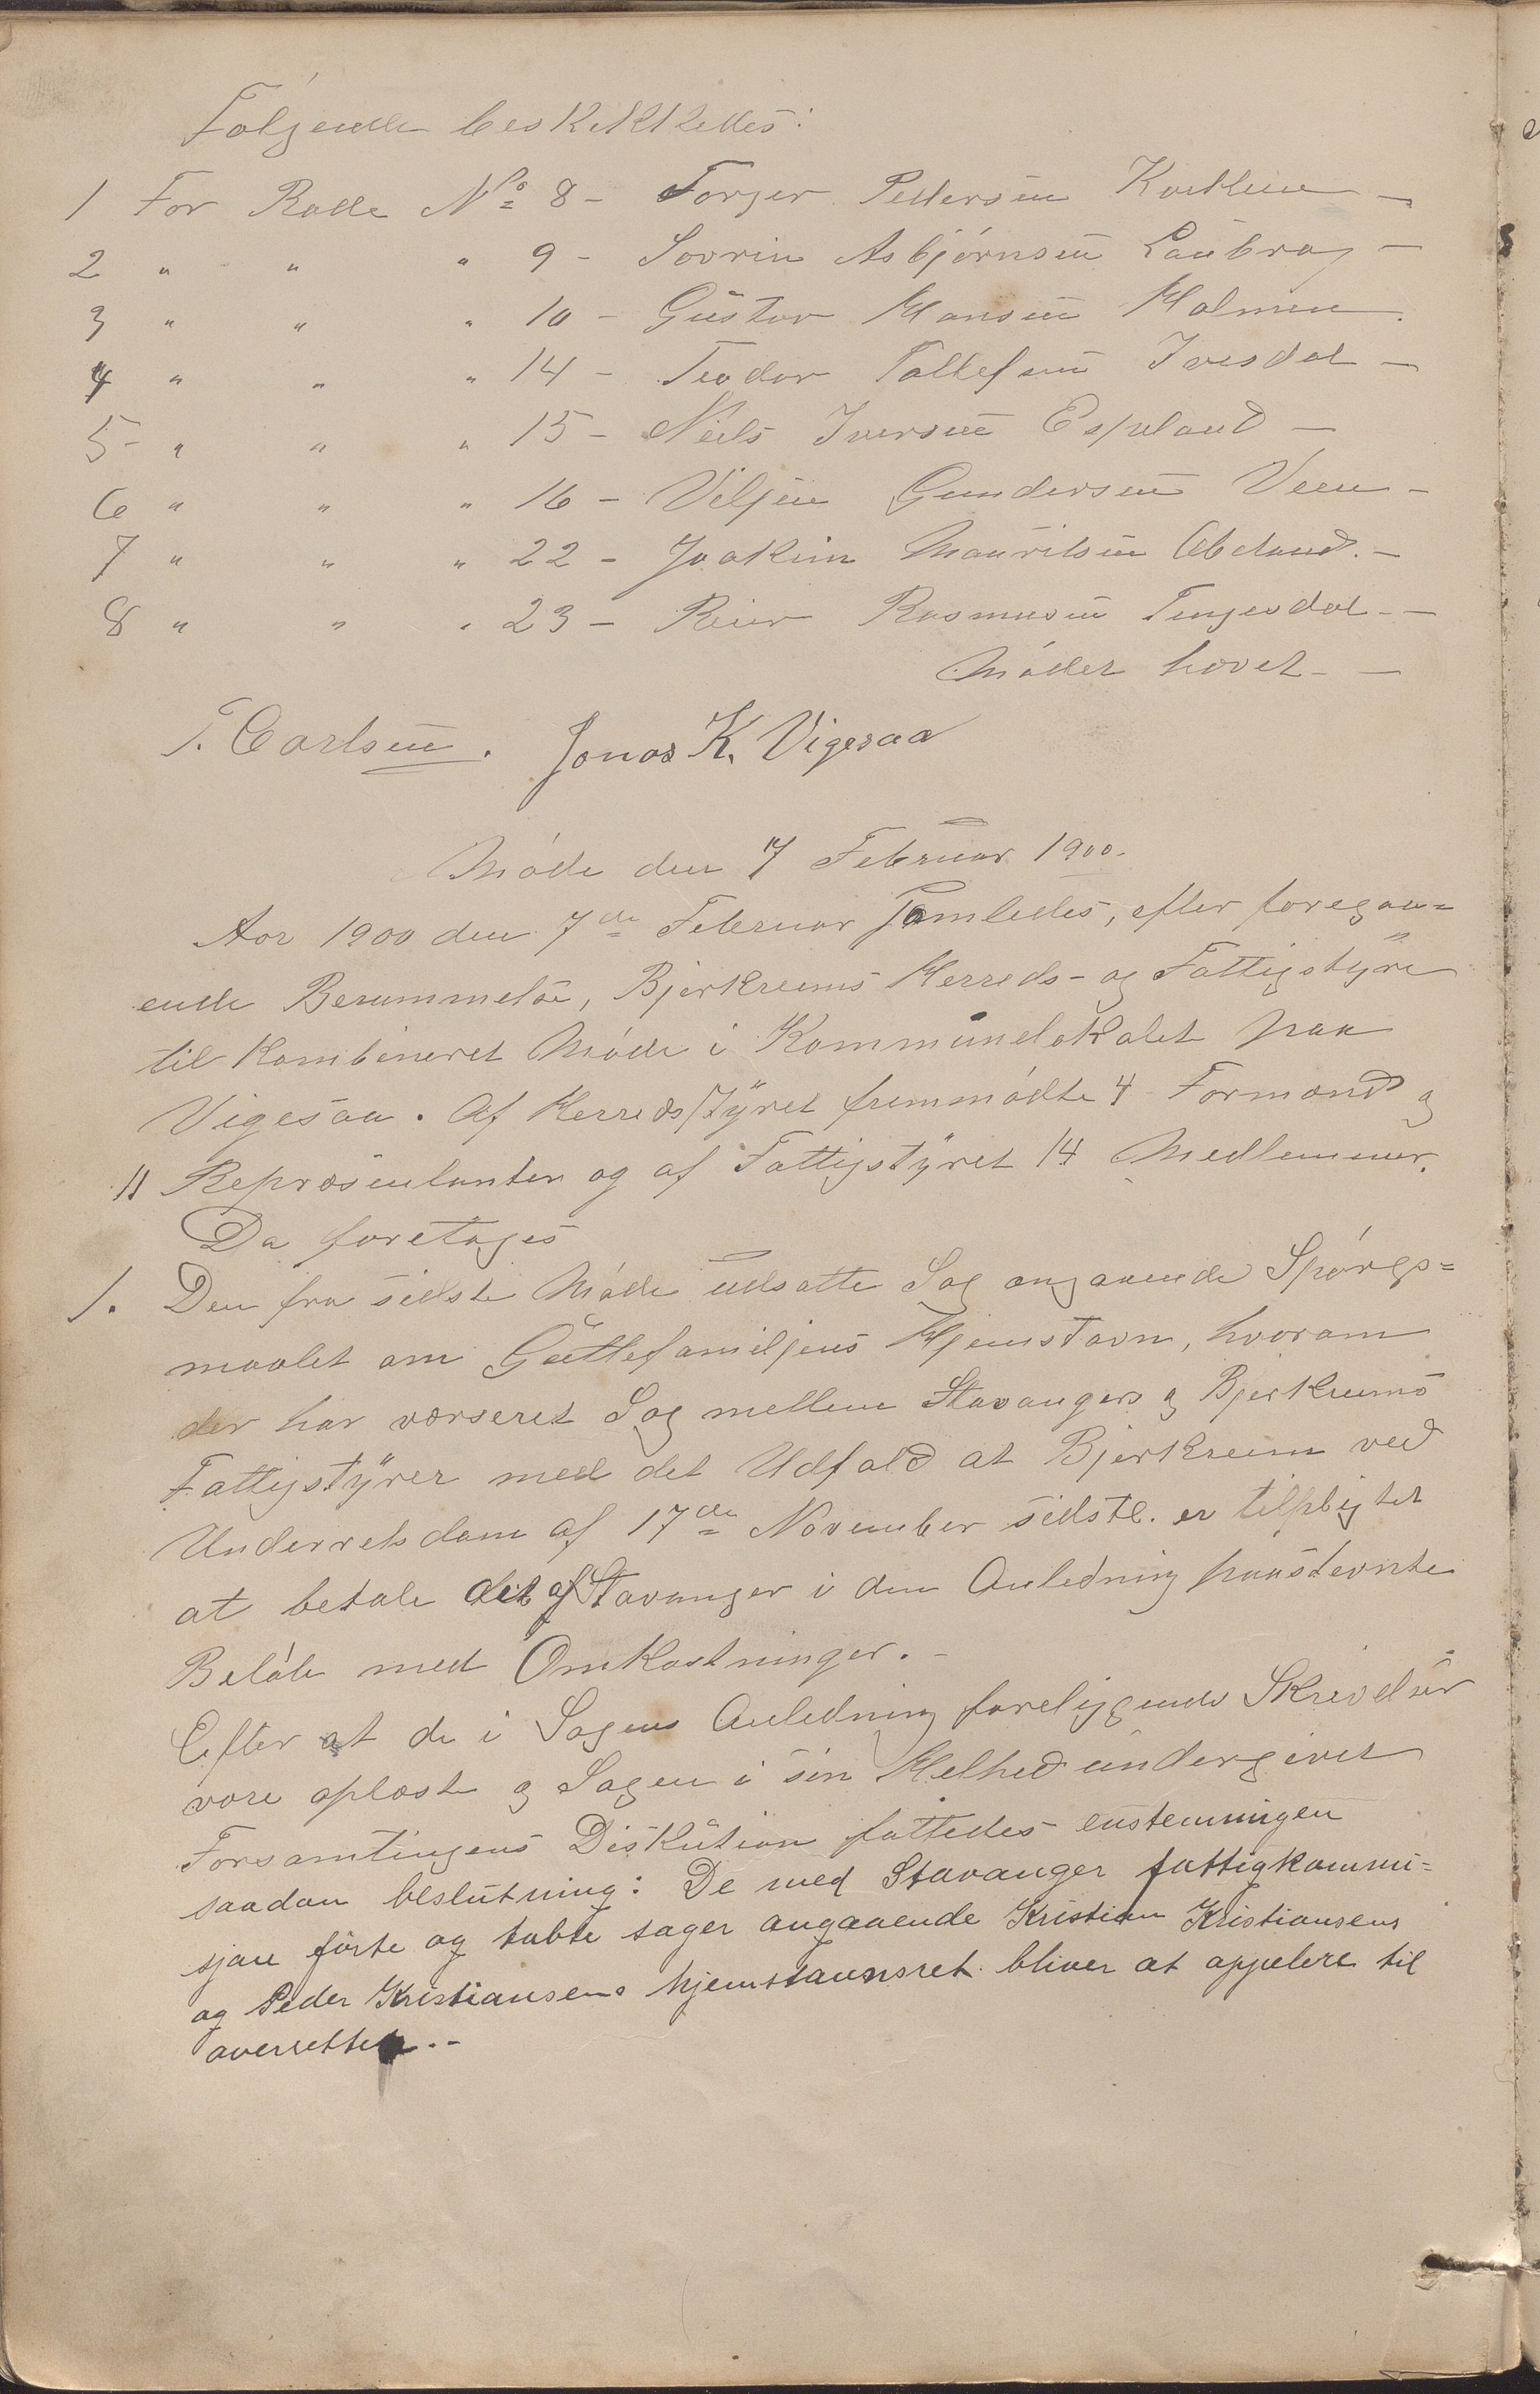 Følgende beskikkedes:
1 For Rode No 8 - Torger Pedersen
2 " " " 9 - Sovrin Asbjørnsen Laubrag -
3 " " " 10 - Gustav Hansen Holmen.
4 " " " 14 - Teodor Tollefsen Ivesdal -
5 - " " " 15 - Niels Iversen Espeland -
6 " " " 16 - Viljen Gundersen Veen -
7 " " " 22 - Joakim Mauritsen Øbeland. -
8 " " " 23 - Reier Rasmusen Tengesdal - -
Mødet hævet - -
T. Carlsen. Jonas K. Vigesaa
Møde den 7 Februar 1900.
Aar 1900 den 7de Februar samledes, efter foregaa=
ende Berammelse, Bjerkreims Herreds- og Fattigstyre
til kombineret Møde i Kommunelokalet paa
Vigesaa. Af Herredsstyret fremmødte 4 Formænd og
11 Repræsentanter og af Fattigstyret 14 Medlemmer.
Da foretoges
1. Den fra sidste Møde udsatte Sag angaaende Spørgs=
maalet om Gytlefamiljens Hjemstavn, hvorom
der har værseret Sag mellem Stavangers og Bjerkreims
Fattigstyrer med det Udfald at Bjerkreim ved
Underretsdom af 17de November sidstl. er tilpligtet
at betale det af Stavanger i den Anledning paastevnte
Beløb med Omkostninger. -
Efter at de i Sagens Anledning foreliggende Skrivelser
vare oplæste og Sagen i sin Helhed undergivet
Forsamlingens Diskution fattedes enstemmigen
saadan beslutning: De med Stavanger fattigkommi=
sjon førte og tabte sager angaaende Kristian Kristiansens
og Peder Kristiansens hjemstavnsret bliver at appelere til
overretten. -